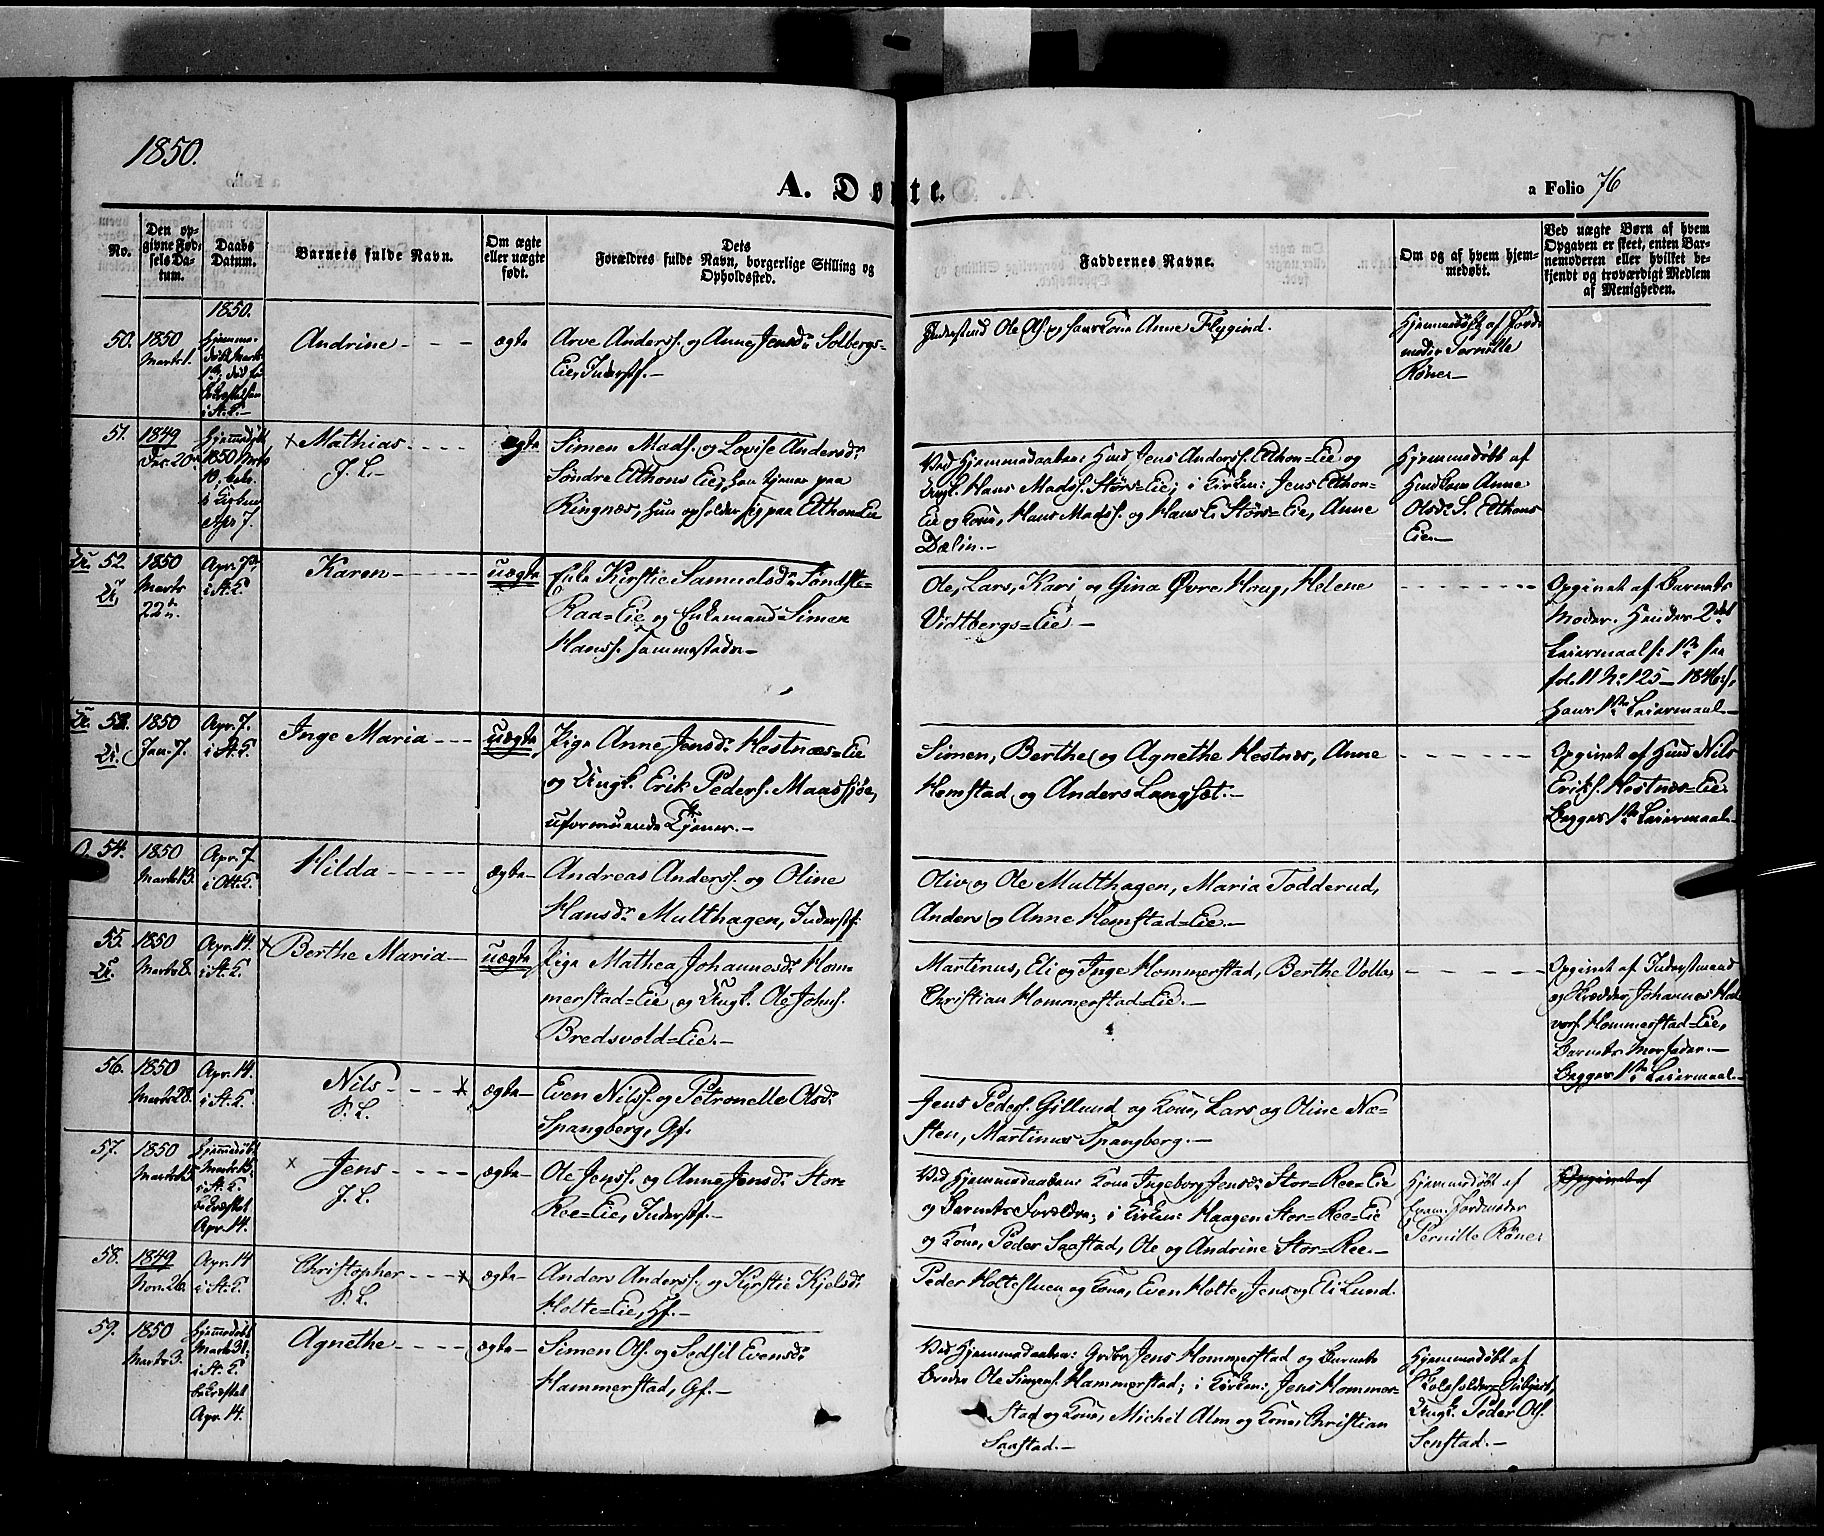 1850.
A. Døbte.
a Folio 76
No.
Den opgivne Fødsels Datum.
Daabs Datum.
Barnets fulde Navn.
Om ægte eller uægte født.
Dets Forældres fulde Navn, borgerlige Stilling og Opholdssted.
Faddernes Navne.
Om og af hvem hjemmedøbt.
Ved uægte Børn af hvem Opgaven er skeet, enten Barnemoderen eller hvilket bekjendt og troværdigt Medlem af Menigheden.
1850.
50. 1850 Marts 1. Andrine - - - ægte
Arve Anderss. og Anne Jensdr. Solbergs=
Eie, Inderstf. -
Inderstmd Ole Ols. og hans Kone Anne Flygind.
Hjemmedøbt af Jord-
moder Pernille
Røner -
51. 1849 Dec. 20 Hjemmedøbt 1850 i Kirken Apr. 7. Mathias - - - ægte
J. L. -
Simen Madss. og Lovise Andersdr.
Søndre Elthons Eie, han tjener paa
Ringnæs, hun opholder sig paa Elthon=Eie
Ved Hjemmedaaben: Husmd Jens Anderss. Elthon=Eie og
Ungk. Hans Madss. Størs=Eie; i Kirken: Jens Elthon=
Eie og Kone, Hans Madss. og Hans E. Størs=Eie, Anne
Dælin. -
Hjemmedøbt af
Huskone Anne
Olsdr. S. Elthons
Eie. -
52. 1850 Marts 22de Apr. 7de i St. K. Karen - - - uægte
Enke Kirstie Samuelsdr. Søndste=
Raa=Eie og Enkemand Simen
Hanss. Jammestad -
Ole, Lars, Kari og Gina Øvre Houg, Helene
Vidtbergs=Eie -
Opgivet af Barnets
Moder. Hendes 2det
Leiermaal s: 1ste see
fol. 11 No. 125 - 1846 s;
hans 1ste Leiermaal -
53. 1850 Jan. 7. Apr. 7. i St. K. Inge Maria - - - uægte
Pige Anne Jensdr. Hestnæs=Eie
og Ungk. Erik Peders. Maassjøe,
uformuende Tjener. -
Simen, Berthe og Agnethe Hestnes, Anne
Hemstad og Anders Langsæt. -
Opgivet af Husmd Nils
Eriks. Hestnæs=Eie.
Begges 1ste Leiermaal -
54. 1850 Marts 13. Apr. 7 i Ott. K. Hilda - - - ægte -
Andreas Anderss. og Oline
Hansdr. Multhagen, Inderstf.
Oliv og Ole Multhagen, Maria Todderud,
Anders og Anne Hemstad=Eie. -
55. 1850 Marts 8. Apr. 14. i St. K. Berthe Maria - uægte
Pige Mathea Johannesdr. Hom-
merstad=Eie og Ungk. Ole Johns.
Bredsvold=Eie. -
Martinus, Eli og Inge Hommerstad, Berthe Volla,
Christian Hommerstad=Eie. -
Opgivet af Inderstmand
og Skrædder Johannes Hal-
vors. Hommerstad=Eie,
Barnets Morfader. -
Begges 1ste Leiermaal -
56. 1850 Marts 28. Apr. 14. i St. K. Nils - - - ægte -
S. L.
Even Nilss. og Petronelle Olsdr.
Spangberg, Gf.
Jens Peders. Gillund og Kone, Lars og Oline Næ-
sten, Martinus Spangberg. -
57. 1850 Hjemmedøbt i St. K. bekræftet Apr. 14. Jens - - - ægte -
J. L.
Ole Jenss. og Anne Jensdr. Stor=
Ree=Eie, Inderstf. -
Ved Hjemmedaaben: Kone Ingeborg Jensdr. Stor=Ree=Eie
og Barnets Forældre; i Kirken: Haagen Stor=Ree=Eie
og Kone, Peder Saastad, Ole og Andrine Stor=Ree. -
Hjemmedøbt af
Exam. Jordmoder
Pernille Røner
Opgivet af
58. 1849 Nov. 26. Apr. 14 i St. K. Christopher - - - ægte -
S. L.
Anders Anderss. og Kyrstie Kjelsdr.
Holte=Eie, Hf. -
Peder Holtestuen og Kone, Even Holte, Jens og Eli Lund.
59. 1850 Marts 3. Hjemmedøbt Marts 31, i St. K. bekræftet Apr. 14. Agnethe - - - ægte -
Simen Ols. og Sedsil Evensdr.
Hammerstad, Gf. -
Ved Hjemmedaaben: Grdbr. Jens Hommerstad og Barnets
Broder Ole Simens. Hammerstad; i Kirken: Jens Hommer-
stad og Kone, Michel Alm og Kone, Christian
Saastad. -
Hjemmedøbt af
Skoleholder=
Ungk. Peder Ols.
Senstad. -